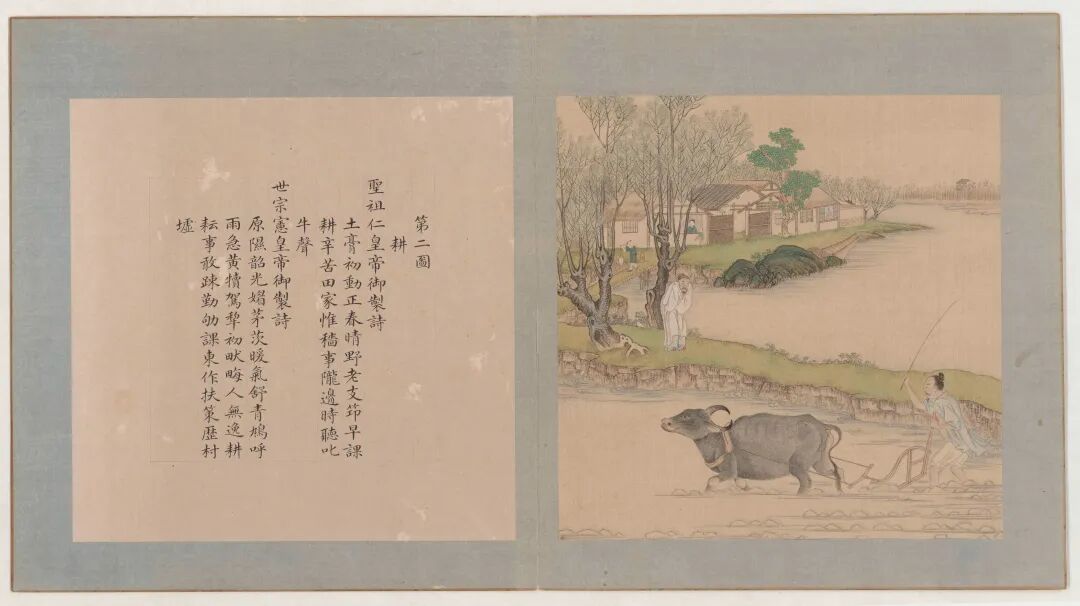 第二圖
耕
聖祖仁皇帝御製詩
土膏初動正春晴野老支筇早課
耕辛苦田家惟穡事隴邊時聽叱
牛聲
世宗憲皇帝御製詩
原隰韶光媚茅茨暖氣舒青鳩呼
雨急黃犢駕犂初畎畮人無逸耕
耘事敢踈勤劬課東作扶策歷村
墟